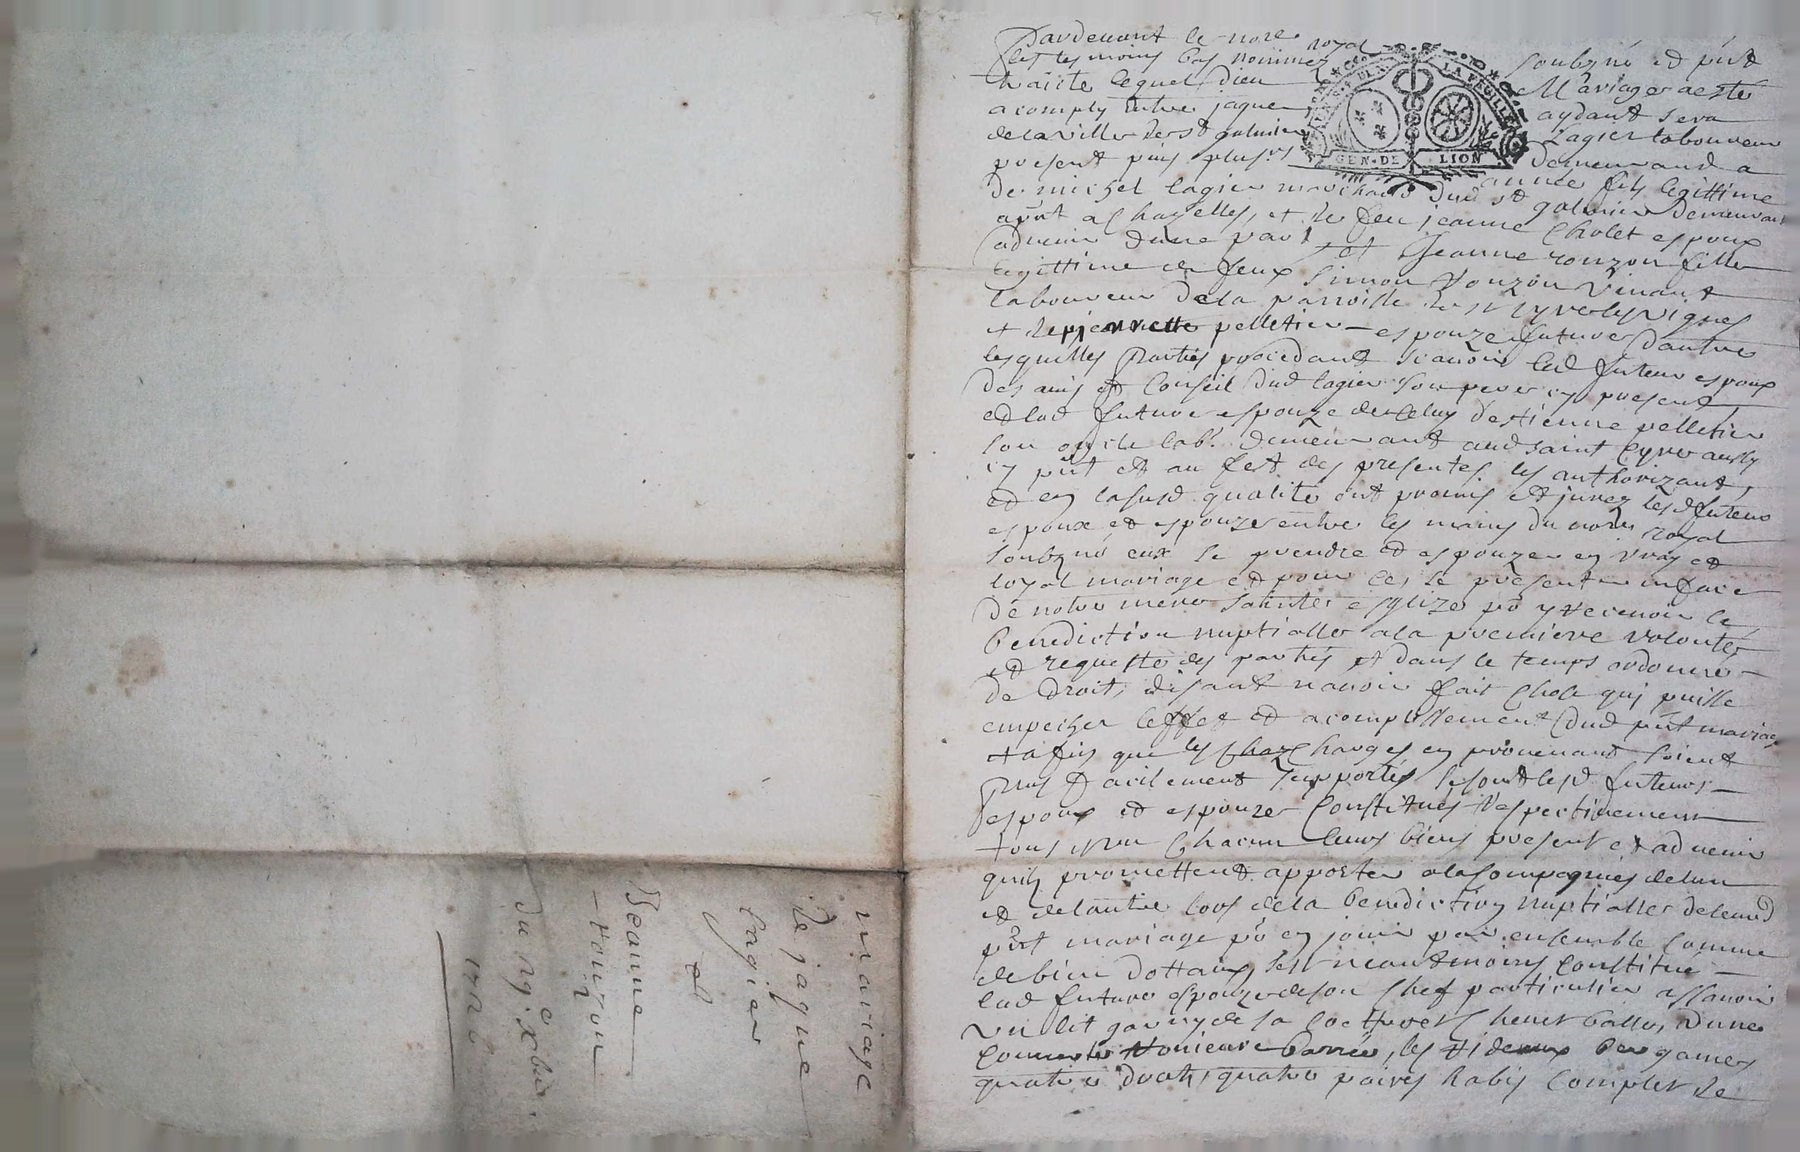 Pardevant le nore royal soubzné et p̃nt
les tesmoins bas nommez Mariage a esté
traicte lequel Dieu aydant sera
acomply entre jaque Lagier laboureur
de la ville de st galmier Demeurand a
present puis plusrs année fils legittime
de michel lagier marchand dud st galmier Demeurant
a chazelles, et de feu jeanne Cholet espoux
advenir dune part et Jeanne ronzon fille
legittime de feux simon Ronzon vivant
laboureur de la parroisse de st cyre les vignes
et de pierrette pelletier espouze future Dautre
lesquelles Parties procedant scavoir led futeur espoux
des avis et Conseil dud lagier son pere cy present
et lad future espouze de celuy destienne pelletier
son oncle labr. demeurant aud saint Cyre aussy
cy p̃nt et au fect des presentes les authorizant
et en lasusd qualité ont promis et jurez lesd futeurs
espoux et espouze entre les mains du nore royal
soubzné eux se prendre et espouzer en vray et
loyal mariage et pour ce, se presenter en face
de notre mere sainte esglize po y recevoir la
Benediction nuptialle a la premiere volonté
et requeste des parties et dans le temps ordonné
de Droit, disant navoir fait Chose qui puisse
empecher leffet et acomplissement dud p̃nt mariage
et afin que les Charges en provenant soient
Plus facilement supportés se sont lesd futeurs
espoux et espouze Constitués respectivement
tous un Chacun leurs biens present et advenir
quils promettent apporter a la Compagnies de lun
et de lautre lors de la benediction nuptialle de leurd
p̃nt mariage po en jouir par ensemble Comme
de bien dottaux, sest neantmoins constitué
lad future espouze de son Chef particulier assavoir
un lit garny de sa Coettre Chevet balle, dune
quatre draps, quatre paires habis Complet, de
GEN. DE LION
LA FEUILLE
mariage
de jaque
Lagier
et
Jeanne
Ronzon
1712